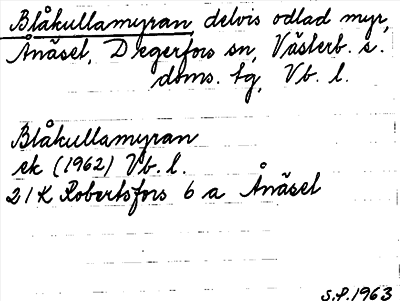 Blåkullamyran, delvis odlad myr,
Ånäset, Degerfors sn, Västerb. s.
doms. tg, Vb. l.
Blåkullamyran
ek (1962) Vb. l.
21 K Robertsfors 6 a Ånäset
S.P. 1963